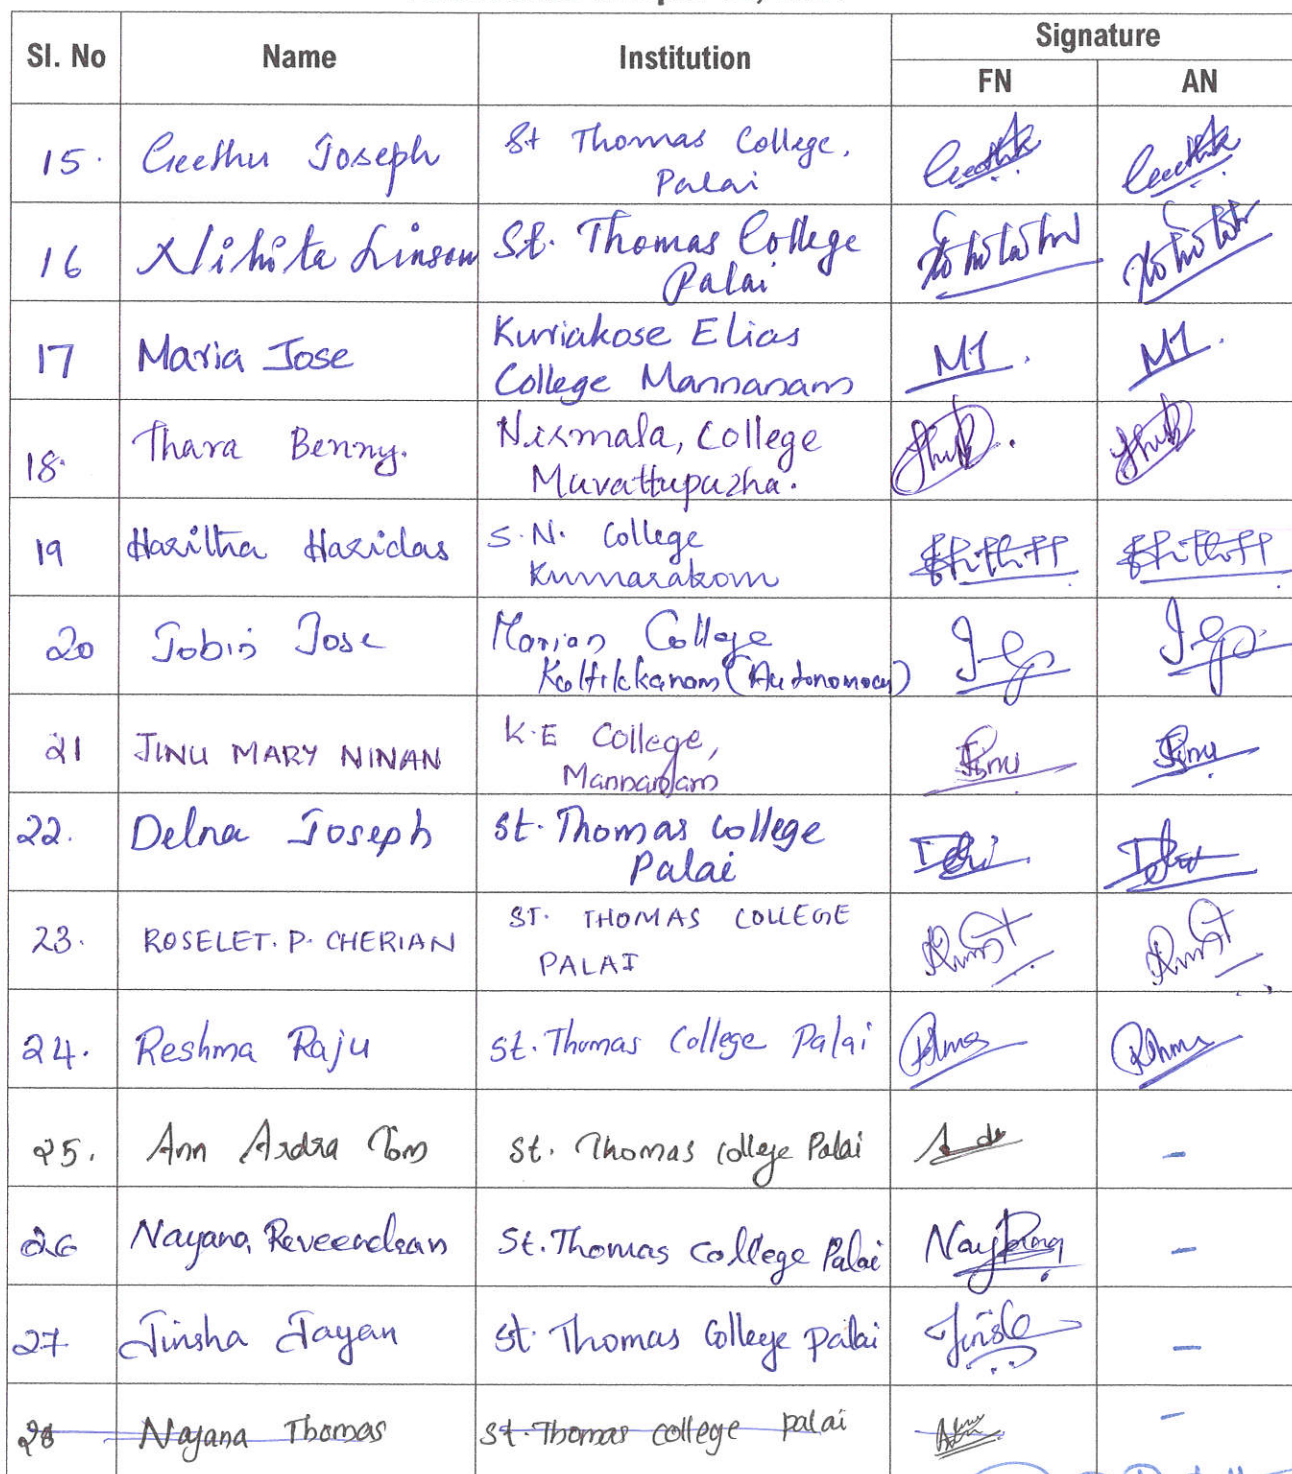 Sl. No Name Institution Signature
FN AN
15. Geethu Joseph St Thomas College,
Palai
16 Nihita Linson St. Thomas College
Palai
17 Maria Jose Kuriakose Elias
College Mannanam
M J. M J.
18. Thara Benny. Nirmala, College
Muvattupuzha.
19 Haritha Haridas S.N. College
Kumarakom
20 Jobin Jose Marian College
Kuttikkanam (Autonomous)
21 JINU MARY NINAN K.E College,
Mannanam
Jinu Jinu
22. Delna Joseph St. Thomas College
Palai
23. ROSELET. P. CHERIAN ST. THOMAS COLLEGE
PALAI
24. Reshma Raju St. Thomas College Palai
25. Ann Ardra Tom St. Thomas College Palai -
26 Nayana Raveendran St. Thomas College Palai -
27 Jinsha Jayan St. Thomas College Palai -
28 Nayana Thomas St. Thomas college palai -